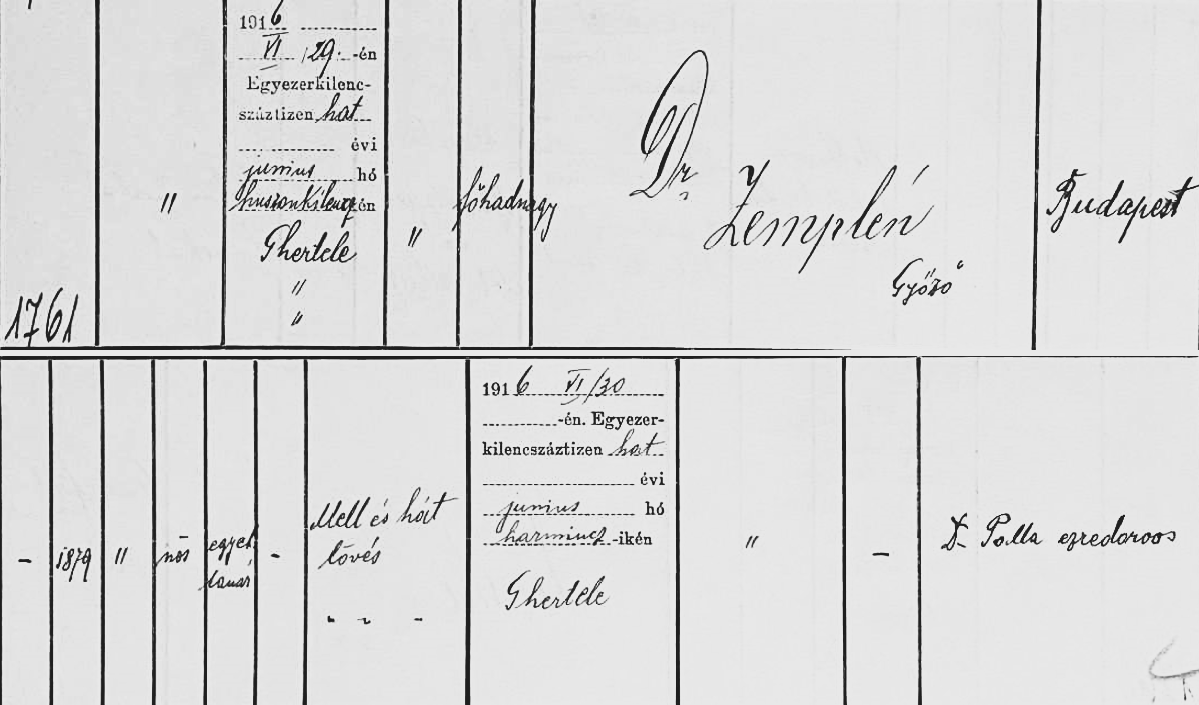 1916
VI /29. -én
Egyezerkilenc-
száztizen hat
évi
junius hó
huszonkilencz én
Ghertele
"
"
"
"
főhadnagy
Dr.
Zemplén
Győző
Budapest
1761
-
1879
"
nős
egyet.
tanár
-
Mell és hát
lövés
" " "
1916 VI/30
-én. Egyezer-
kilencszáztizen hat
évi
junius hó
harmincz -ikén
Ghertele
"
-
Dr. Polla ezredorvos